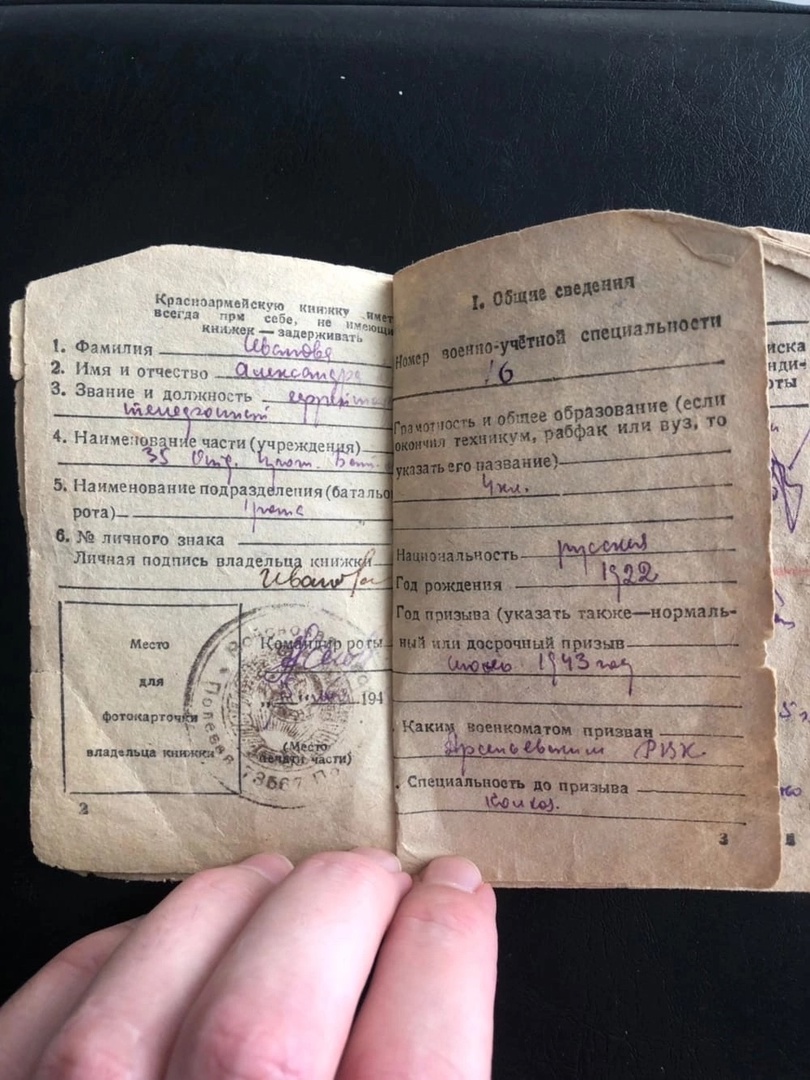 Красноармейскую книжку имет
всегда при себе, не имеющи
книжек — задерживать
1. Фамилия Иванова
2. Имя и отчество Александра
3. Звание и должность ефрейтор
4. Наименование части (учреждения)
35 Отд.
5. Наименование подразделения (батальо
рота) рота
6. № личного знака
Личная подпись владельца книжки
Иванова
Место
для
фотокарточки
владельца книжки
Командир роты
194
(Место
печати части)
Полевая
2
I. Общие сведения
Номер военно-учётной специальности
16
Грамотность и общее образование (если
окончил техникум, рабфак или вуз, то
указать его название)
4 кл.
Национальность русская
Год рождения 1922
Год призыва (указать также—нормаль-
ный или досрочный призыв
1943 год
Каким военкоматом призван
Арсеньевским РВК
Специальность до призыва
Колхоз.
3
иска
нди-
оты